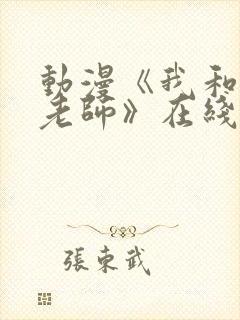 動漫《我和
老師》在綫
張東武